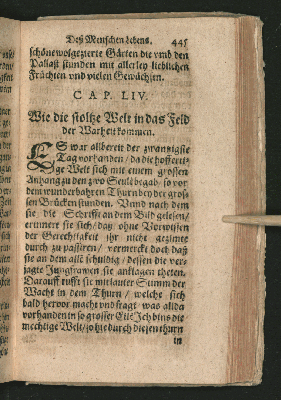 Deß Menschen Lebens. 445
schöne wolgezierte Gärten die vmb den
Pallast stunden mit allerley lieblichen
Früchten vnd vielen Gewächsen.
CAP. LIV.
Wie die stoltze Welt in das Feld
der Warheit kommen.
ES war allbereit der zwantzigste
Tag vorhanden / da die hofferti-
ge Welt sich mit einem grossen
Anhang zu den zwo Seulen begab / so vor
dem wunderbahren Thurn bey der gros-
sen Brücken stunden. Vnnd nach dem
sie die Schrifft an dem Bild gelesen /
erinnert sie sich / daß ohne Vorwissen
der Gerechtigkeit ihr nicht gezimte
durch zu passiren / vermerckt doch daß
sie an dem allē schuldig / dessen die ver-
jagte Jungfrawen sie anklagen theten.
Darauff rufft sie mit lauter Stimm der
Wacht in dem Thurn / welche sich
bald hervor macht vnd fragt was allda
vorhanden in so grosser Eil: Ich bins die
mechtige Welt / so hie durch diesen thurn
in